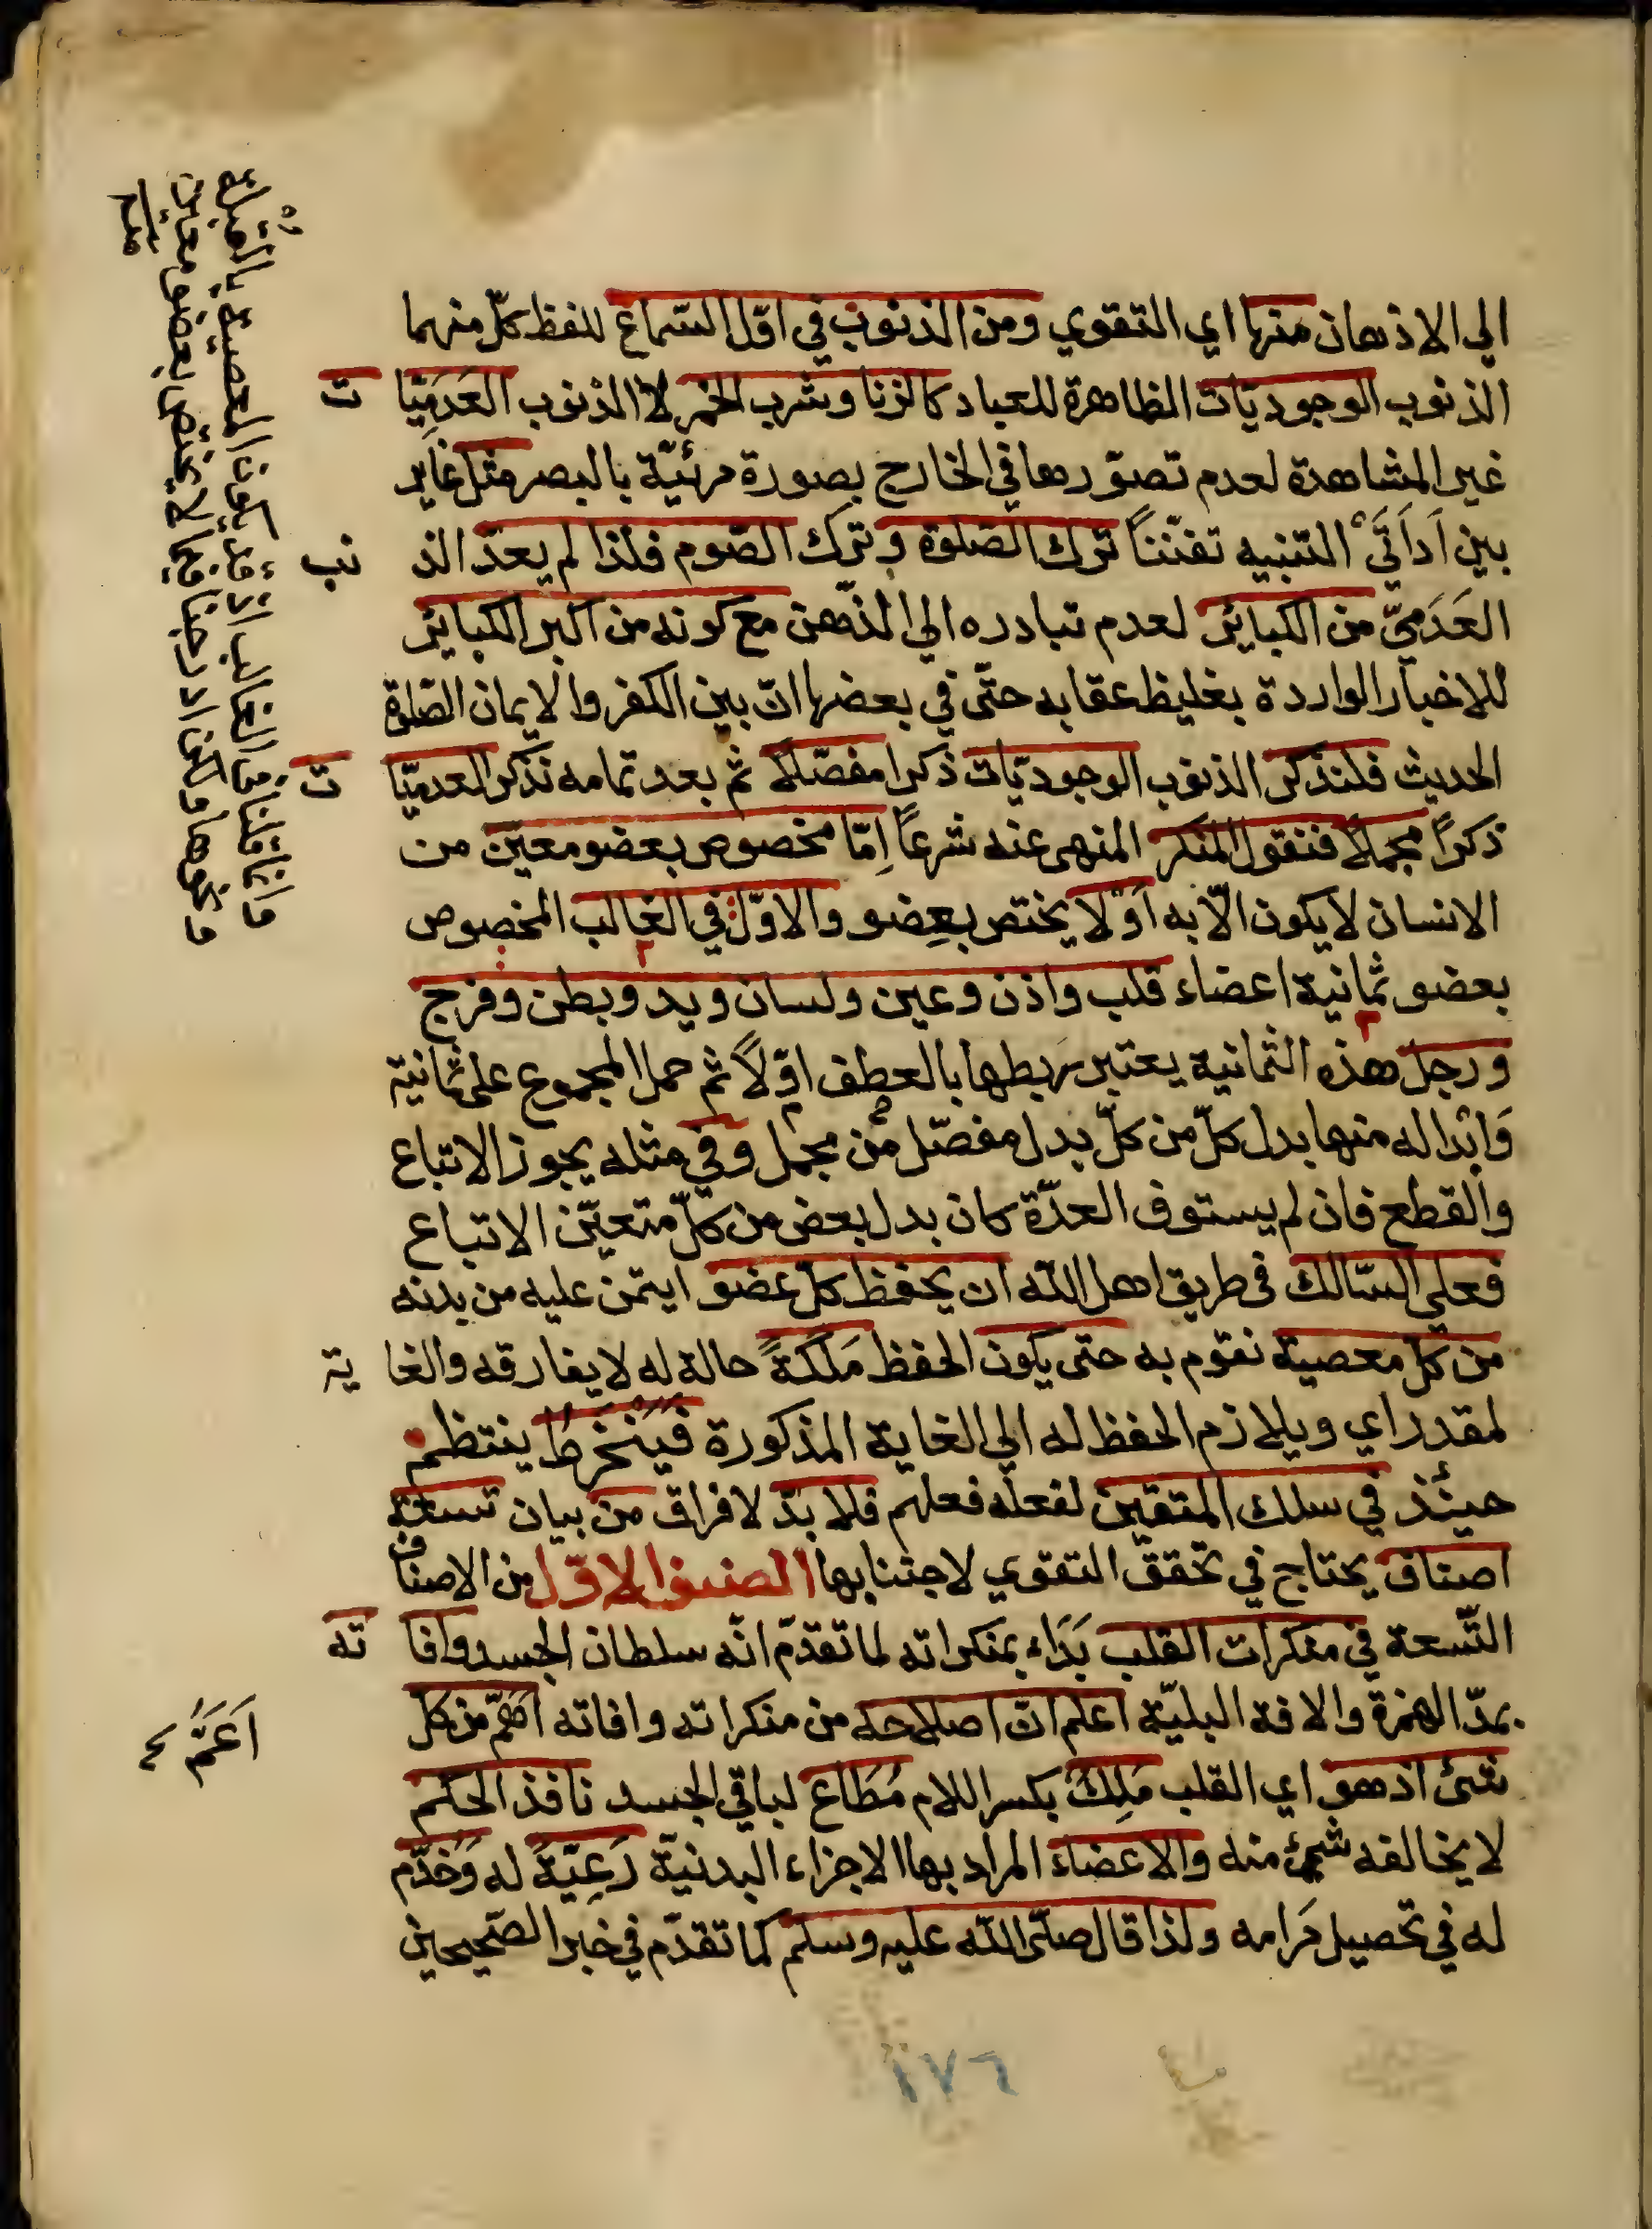 الي الاذهان منها اي التقوي ومن الذنوب في اوّل السّماع للفظ كلّ منهما
الذنوب الوجوديّات الظاهرة للعباد كالزنا وشرب الخمر لا الذنوب العَدَمِيّات
غير المشاهدة لعدم تصوّرها في الخارج بصورة مرئيّة بالبصر مثل غاير
بين اَدَاتَيْ التنبيه تفنّناً ترك الصلوة وترك الصّوم فلذا لم يعدّ الذنب
العَدَمِيّ من الكبائر لعدم تبادره الي الذّهن مع كونه من اكبر الكبائر
للاخبار الواردة بغليظ عقابه حتّى في بعضها انّ بين الكفر والايمان الصّلوة
الحديث فلنذكر الذنوب الوجوديّات ذكرا مفصّلا ثم بعد تمامه نذكر العدميّات
ذكراً مجملاً فنقول المنكر المنهى عنه شرعاً اِمّا مخصوص بعضو معيّن من
الانسان لا يكون الّا به اَوْ لا يختص بعِضو والاوّل في الغالب المخصوص
بعضو ثمانية اعضاء قلب واذن وعين ولسان ويد وبطن وفرج
ورجل هذه الثمانية يعتبر ربطها بالعطف اوّلاً ثم حمل المجموع على ثمانية
وَابْداله منها بدل كلّ من كلّ بدل مفصّل من مجمل وفي مثله يجوز الاتباع
والقطع فان لم يستوف العدّة كان بدل بعض من كلّ متعيّن الاتباع
فعلي السّالك فى طريق اهل اللّه ان يحفظ كلّ عضو ايتمن عليه من بدنه
من كلّ معصية تقوم به حتى يكون الحفظ مَلَكَةً حالة له لا يفارقه والغاية
لمقدر اي ويلازم الحفظ له الي الغاية المذكورة فَيَنْخَرِطُ ينتظم
حينئذ في سلك المتقين لفعله فعلهم فلا بدّ لا فراق من بيان تسعة
اصناف يحتاج في تحققّ التقوي لاجتنابها الصنف الاوّل من الاصناف
التّسعة في منكرات القلب بَدَاء بمنكراته لما تقدّم انّه سلطان الجسد وافاته
بمدّ الهمزة والافة البليّة اعلم انّ اصلاحه من منكراته وافاته اهمّ من كل
شئ اذ هو اي القلب مَلِكٌ بكسر اللام مُطَاع لباقي الجسد نافذ الحكم
لا يخالفه شئ منه والاعضاء المراد بها الاجزاء البدنيّة رَعِيّةٌ له وَخَدَّم
له في تحصيل مَرامه ولذا قال صلّى اللّه عليه وسلم كما تقدّم في خبر الصّحيحين
اَعَمَّ
وانما قلنا في الغالب لانه قد يكون المعصية بالقتل
ونحوها
١٧٦